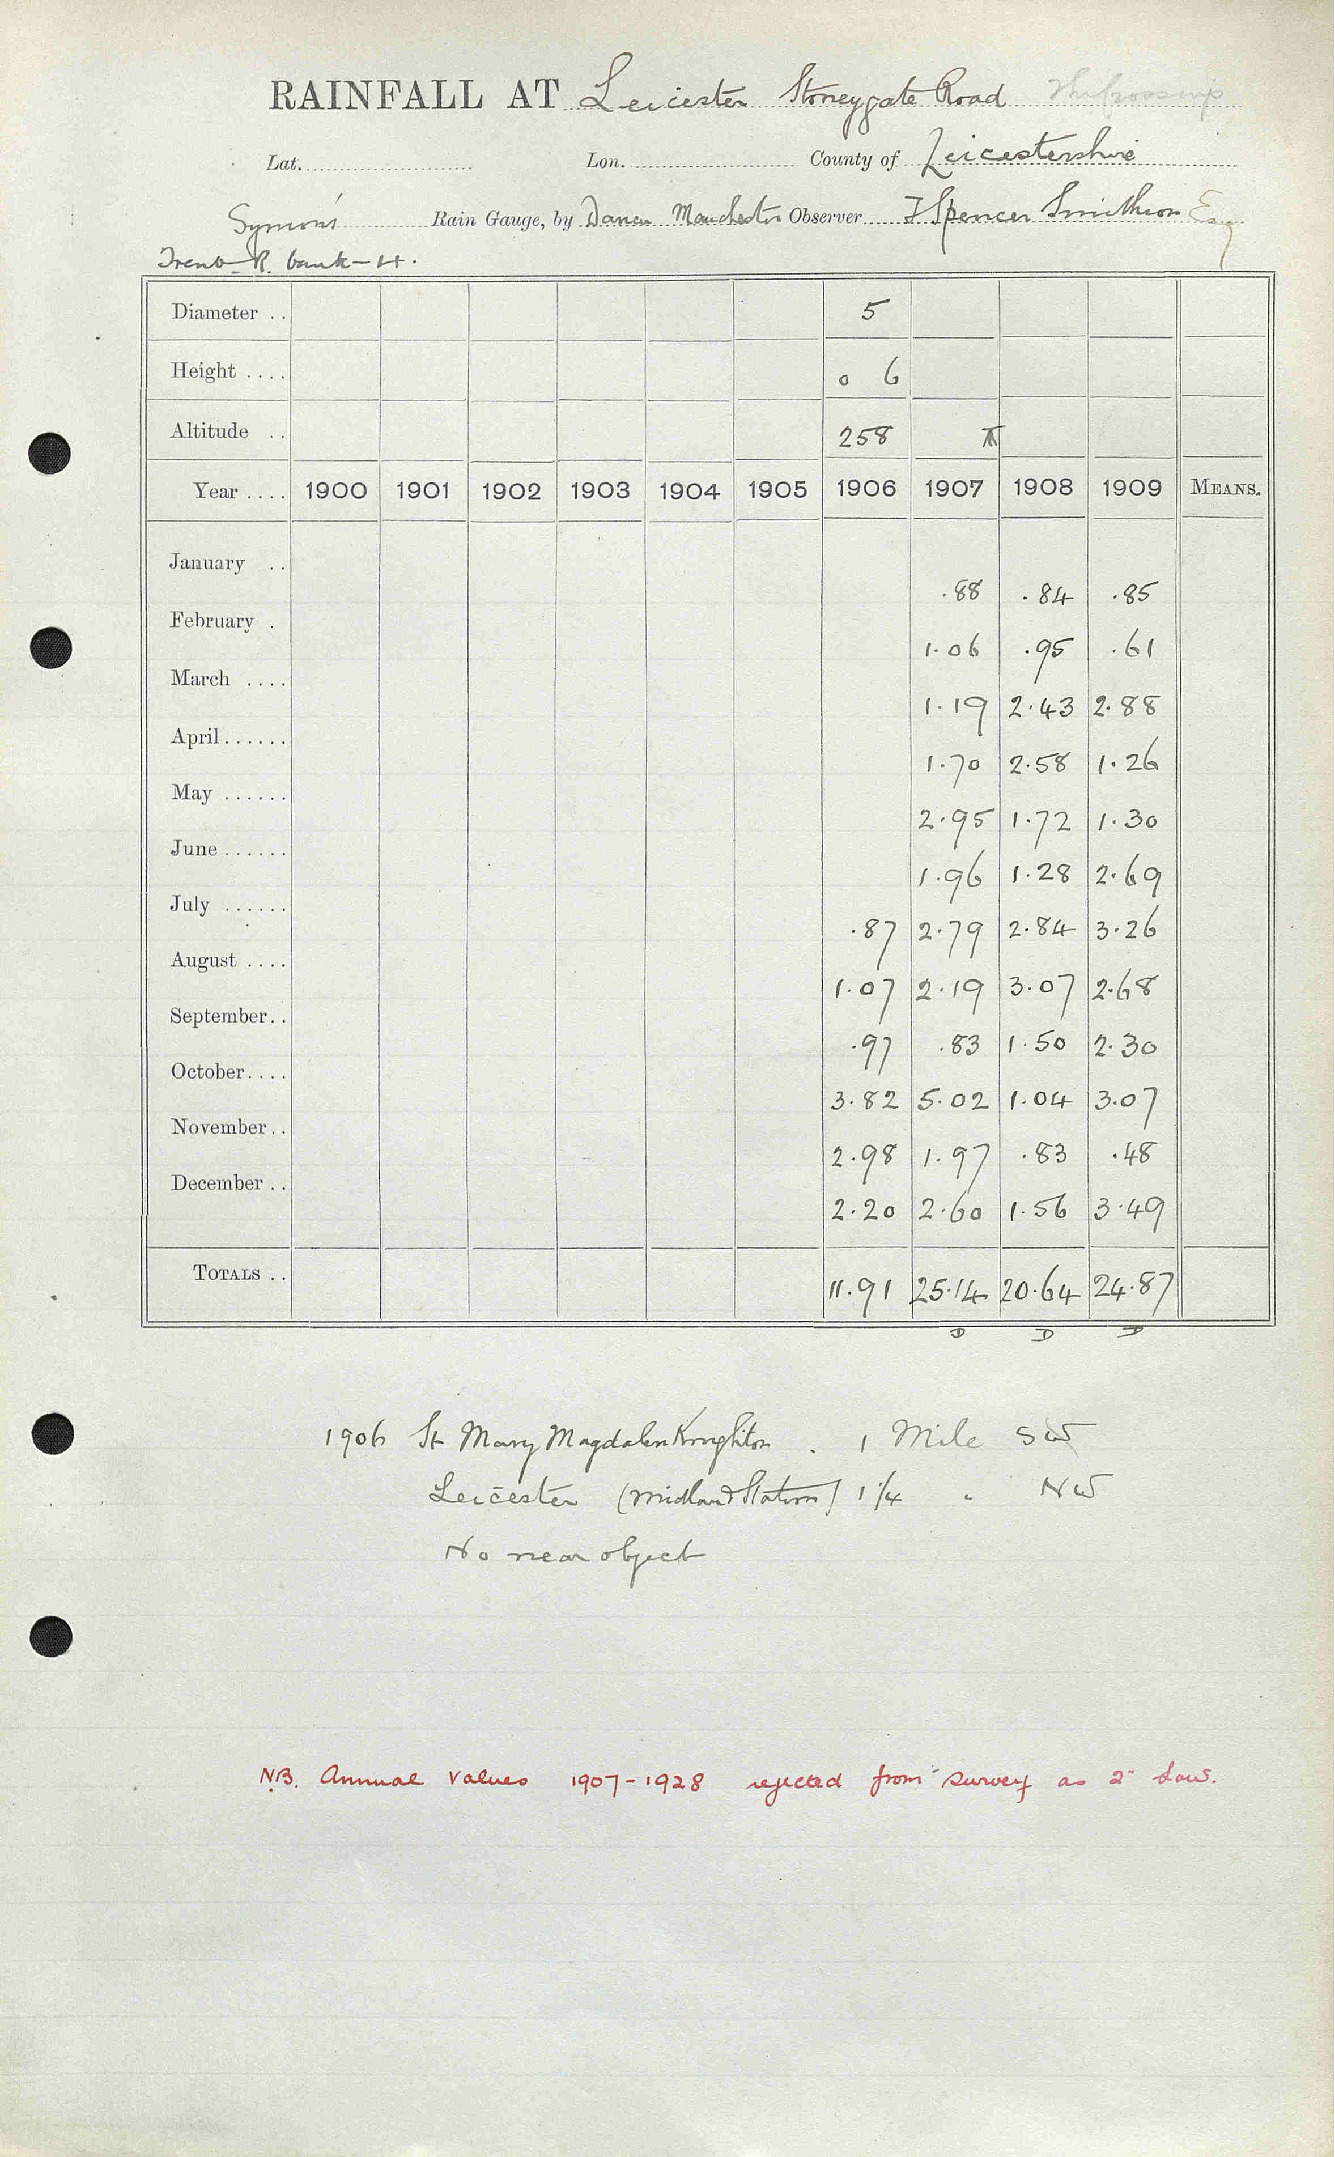 RAINFALL AT Leicester Stoneygate Road
Lat. Lon. County of Leicestershire
Symons Rain Gauge, by Manchester Observer J Spencer Smithson Esq
Trent R. bank - 4.
Diameter .. 5
Height .... 0 6
Altitude .. 258 T
Year .... 1900 1901 1902 1903 1904 1905 1906 1907 1908 1909 MEANS.
January .. .88 .84 .85
February . 1.06 .95 .61
March .... 1.19 2.43 2.88
April ...... 1.70 2.58 1.26
May ...... 2.95 1.72 1.30
June ...... 1.96 1.28 2.69
July ...... .87 2.79 2.84 3.26
August .... 1.07 2.19 3.07 2.68
September .. .97 .83 1.50 2.30
October .... 3.82 5.02 1.04 3.07
November .. 2.98 1.97 .83 .48
December .. 2.20 2.60 1.56 3.49
TOTALS .. 11.91 25.14 20.64 24.87
D D D
1906 St Mary Magdalen Knighton . 1 Mile SW
Leicester (Midland Station) 1 1/4 " NW
No near object
NB. Annual Values 1907-1928 rejected from survey as 2" low.